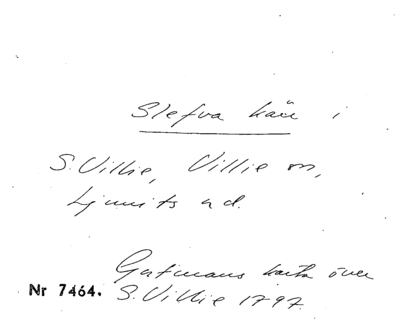 Slefva kärr i
S. Villie, Villie sn,
Ljunits hd.
Gutmans karta över
Nr 7464. S. Villie 1797.